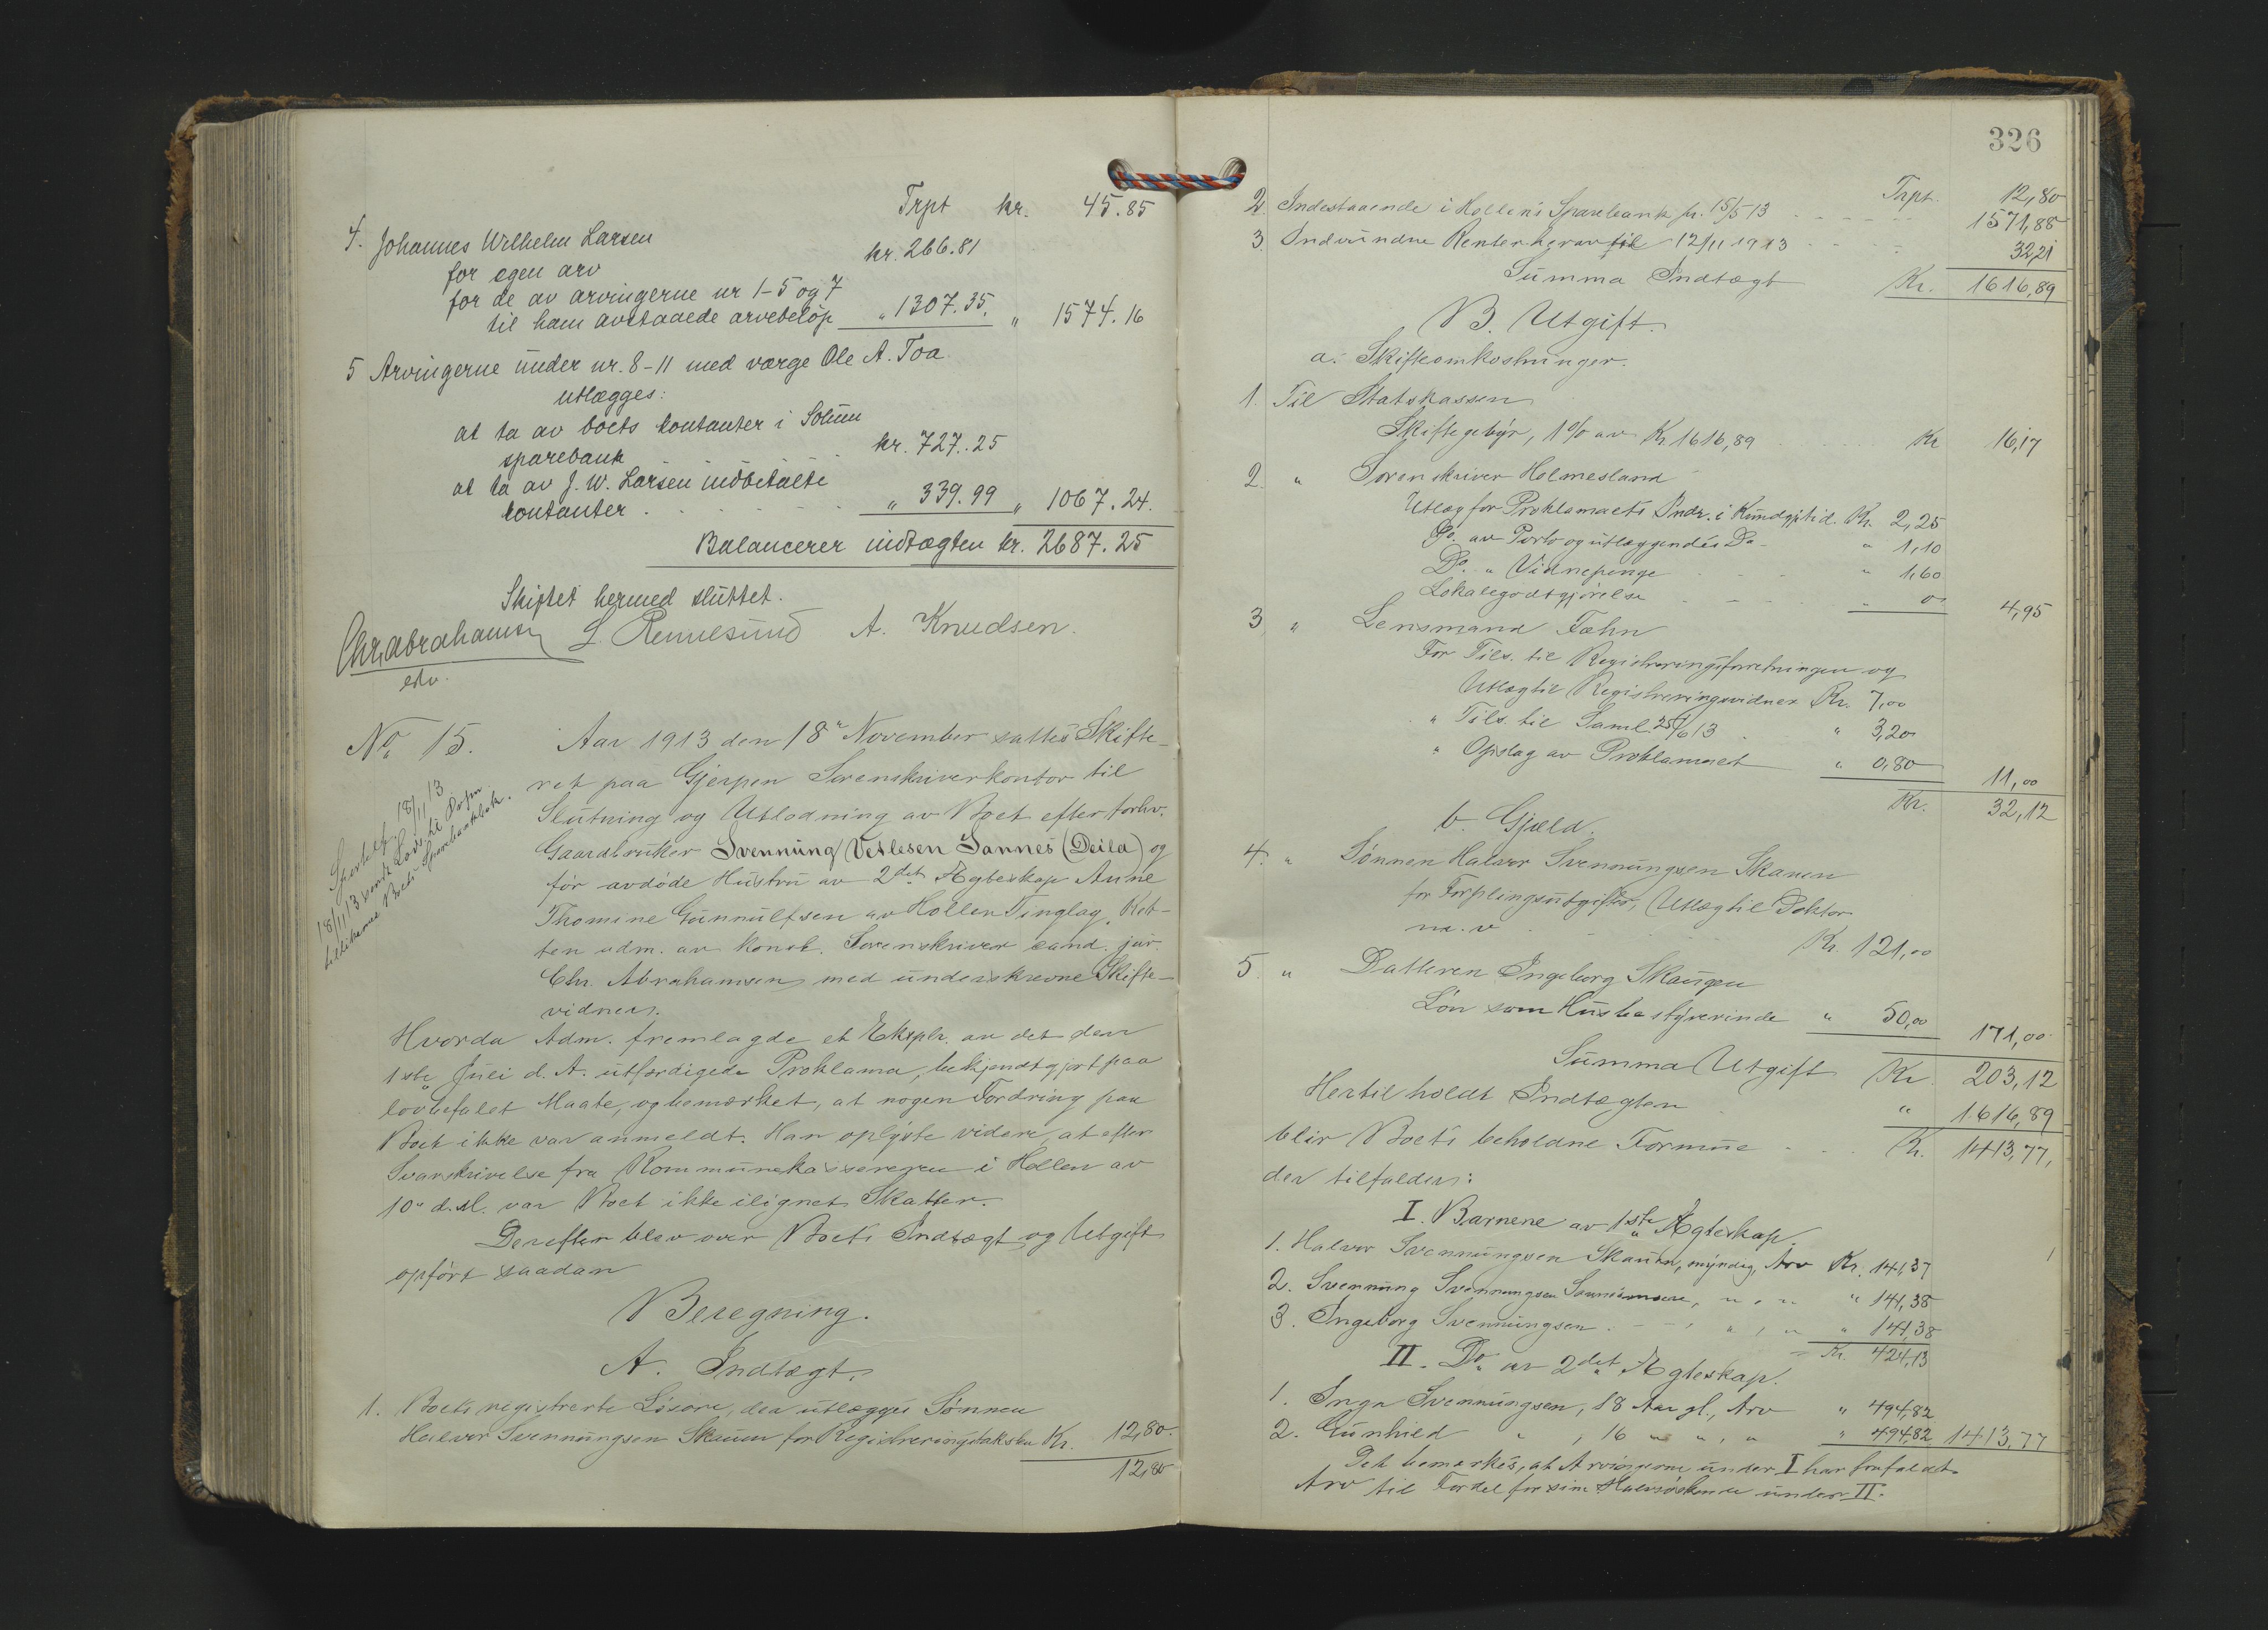 Trpt kr. 45.85
4. Johannes Wilhelm Larsen
for egen arv kr. 266.81
for de av arvingerne nr 1-5 og 7
til ham avstaaede arvebeløp " 1307.35. " 1574.16
5 Arvingerne under nr. 8-11 med værge Ole A. Toa
utlægges:
at ta av boets kontanter i Solum
sparebank kr. 727.25
at ta av J. W. Larsen indbetalte
kontanter . " 339.99 " 1067.24.
Balancerer indtægten kr. 2687.25
Skiftet hermed sluttet.
Chr. Abrahamsen L. Rennesund A. Knudsen.
No 15. Aar 1913 den 18de November sattes Skifte-
ret paa Gjerpen Sorenskriverkontor til
Slutning og Utlodning av Boet efter forhv.
Gaardbruker Svennung Vetlesen Sannes (Deila) og
før avdøde Hustru av 2det Ægteskap Anne
Thomine Gunnulfsen av Hollen Tinglag. Ret-
ten adm. av konst. Sorenskriver cand. jur.
Chr. Abrahamsen med underskrevne Skifte-
vidner.
18/11 13
18/11 13 sendt
Boets Sparebankbok.
Hvorda Adm. fremlagde et Eksplr. av det den
1ste Juli d. A. utfærdigede Proklama, bekjendtgjort paa
lovbefalet Maate, og bemærket, at nogen Fordring paa
Boet ikke var anmeldt. Han oplyste videre, at efter
Svarskrivelse fra Kommunekassereren i Hollen av
10. d. M. var Boet ikke ilignet Skatter.
Derefter blev over Boets Indtægt og Utgift
opført saadan
Beregning.
A. Indtægt.
1. Boets registrerte Løsøre, der utlægges Sønnen
Halvor Svennungsen Skauen for Registreringstaksten Kr. 12,80.
12,80
326
Trpt. 12,80
2. Indestaaende i Hollens Sparebank pr. 15/5 13 1571,88
3. Indvundne Renter herav til 12/11 1913 32,21
Summa Indtægt Kr. 1616,89
B. Utgift.
a. Skifteomkostninger.
1. Til Statskassen
Skiftegebyr, 1% av Kr. 1616,89 Kr 16,17
2. " Sorenskriver Holmesland
Utlæg for Proklamaets Indr. i Kundgj.tid. Kr. 2,25
Do. av Porto og utlæggendes Do " 1,10
Do. " Vidnepenge " 1,60
Lokalegodtgjørelse " 0 4,95
3. " Lensmand Fæhn
For Tils. til Registreringsforretningen og
Utlæg til Registreringsvidner Kr. 7,00
" Tils. til Saml. 25/6 13 " 3,20
" Opslag av Proklamaet " 0,80 11,00
Kr. 32,12
b. Gjæld.
4. " Sønnen Halvor Svennungsen Skauen
for Forplingsutgifter, Utlæg til Doktor
m. v. Kr. 121,00
5. " Datteren Ingeborg Skaugen
Løn som Husbestyrerinde " 50,00 171,00
Summa Utgift Kr. 203,12
Hertil holdt Indtægten " 1616,89
blir Boets beholdne Formue Kr. 1413,77,
der tilfalder:
I. Barnene av 1ste Ægteskap.
1. Halvor Svennungsen Skauen, myndig, Arv Kr. 141,37
2. Svennung Svennungsen , " , " " 141,38
3. Ingeborg Svennungsen , " , " " 141,38
= Kr. 424,13
II. Do. av 2det Ægteskap.
1. Inga Svennungsen, 18 Aar gl., Arv " 494,82
2. Gunhild " , 16 " ", " " 494,82 1413,77
Det bemærkes, at Arvingerne under I har frafaldt
Arv til Fordel for sine Halvsøskende under II.